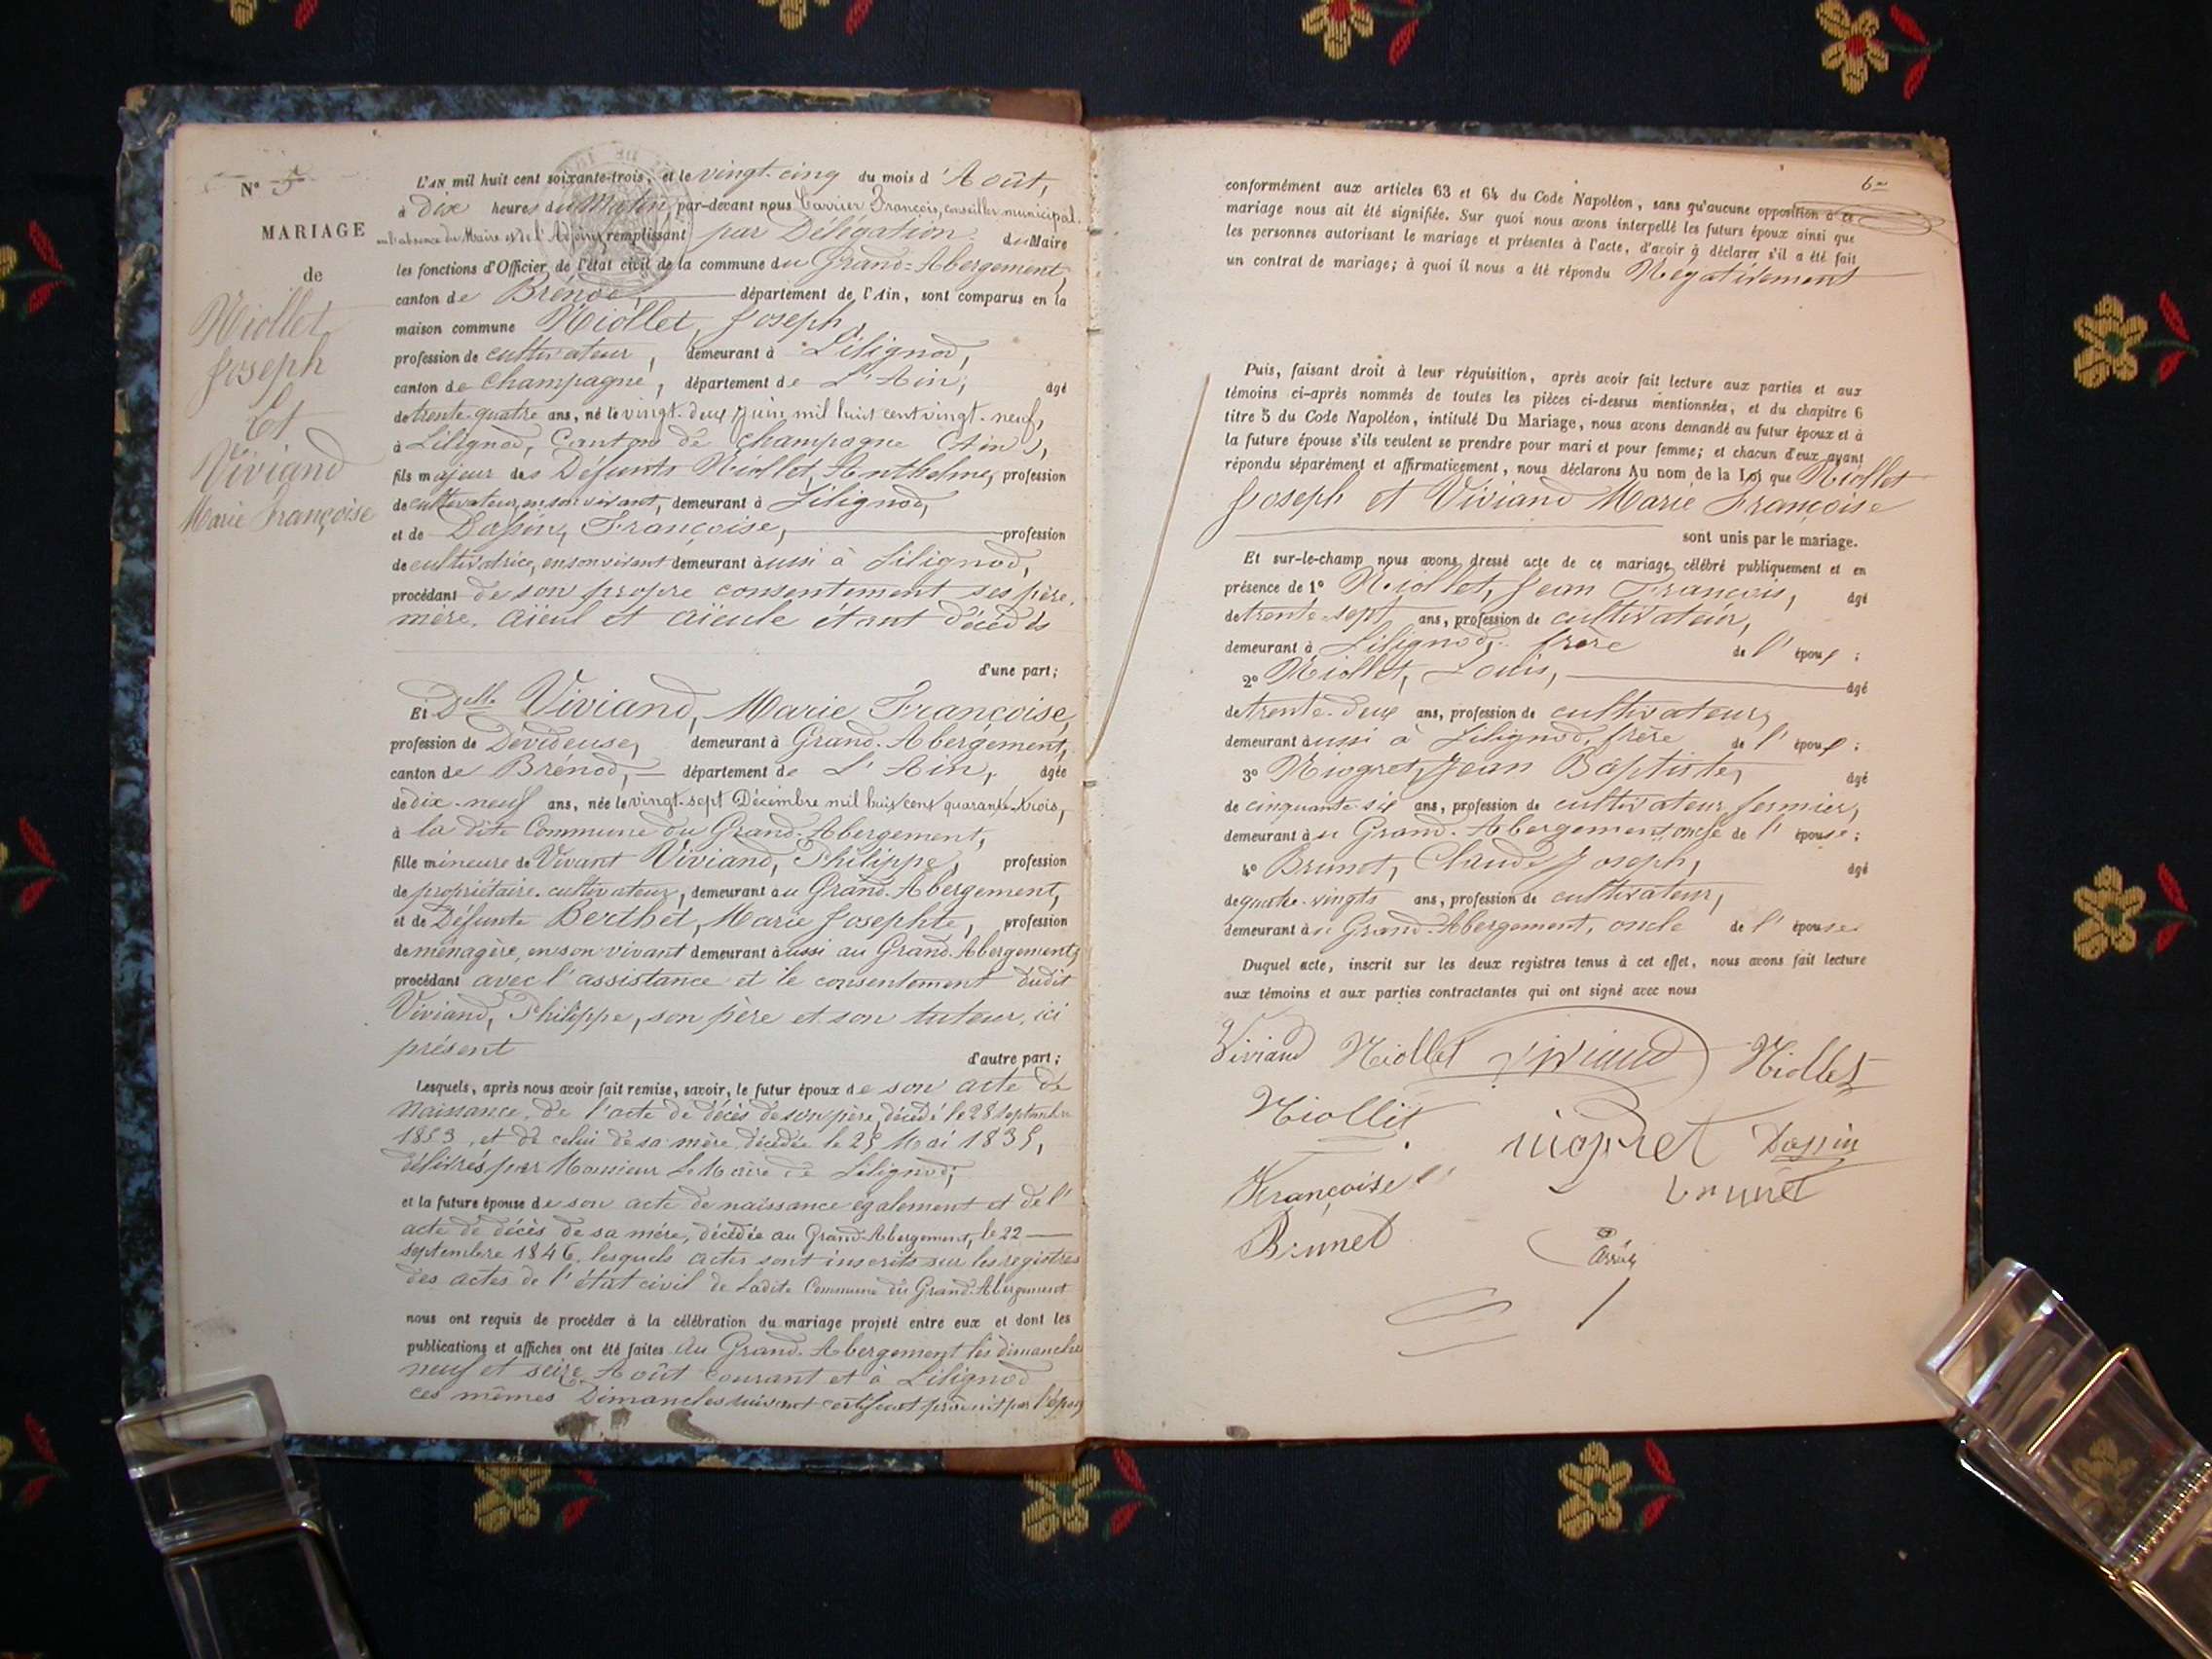 N° 5
MARIAGE
de
Niollet
Joseph
Et
Viviand
Marie Françoise
L'AN mil huit cent soixante-trois, et le vingt-cinq du mois d'Août,
à dix heures du Matin, par-devant nous Carrier François, conseiller municipal
en l'absence du Maire et de l'Adjoint remplissant par Délégation du Maire
les fonctions d'Officier de l'état civil de la commune du Grand-Abergement,
canton de Brénod, département de l'Ain, sont comparus en la
maison commune Niollet, Joseph,
profession de cultivateur, demeurant à Lilignod,
canton de Champagne, département de L'Ain, âgé
de trente-quatre ans, né le vingt-deux Juin mil huit cent vingt-neuf,
à Lilignod, Canton de Champagne (Ain),
fils majeur des Défunts Niollet, Anthelme, profession
de cultivateur, en son vivant, demeurant à Lilignod,
et de Dassin, Françoise, profession
de cultivatrice, en son vivant demeurant aussi à Lilignod,
procédant de son propre consentement ses père,
mère, aïeul et aïeule étant décédés
d'une part;
Et Delle Viviand, Marie Françoise,
profession de Dévideuse, demeurant à Grand-Abergement,
canton de Brénod, département de L'Ain, âgée
de dix-neuf ans, née le vingt-sept Décembre mil huit cent quarante-trois,
à la dite Commune du Grand-Abergement,
fille mineure de Vivant Viviand, Philippe, profession
de propriétaire-cultivateur, demeurant au Grand-Abergement,
et de Défunte Berthet, Marie Josephte, profession
de ménagère, en son vivant demeurant aussi au Grand-Abergement,
procédant avec l'assistance et le consentement dudit
Viviand, Philippe, son père et son tuteur, ici
présent
d'autre part;
Lesquels, après nous avoir fait remise, savoir, le futur époux de son acte de
Naissance, de l'acte de décès de son père, décédé le 28 septembre
1853, et de celui de sa mère, décédée le 25 Mai 1835,
délivrés par Monsieur Le Maire de Lilignod;
et la future épouse de son acte de naissance également et de l'
acte de décès de sa mère, décédée au Grand-Abergement, le 22
septembre 1846, lesquels actes sont inscrits sur les registres
des actes de l'état civil de Ladite Commune du Grand-Abergement
nous ont requis de procéder à la célébration du mariage projeté entre eux et dont les
publications et affiches ont été faites au Grand-Abergement les dimanches
neuf et seize Août courant et à Lilignod
ces mêmes Dimanches suivant certificat produit par l'époux
6
conformément aux articles 63 et 64 du Code Napoléon, sans qu'aucune opposition à ce
mariage nous ait été signifiée. Sur quoi nous avons interpellé les futurs époux ainsi que
les personnes autorisant le mariage et présentes à l'acte, d'avoir à déclarer s'il a été fait
un contrat de mariage; à quoi il nous a été répondu Négativement
Puis, faisant droit à leur réquisition, après avoir fait lecture aux parties et aux
témoins ci-après nommés de toutes les pièces ci-dessus mentionnées, et du chapitre 6
titre 5 du Code Napoléon, intitulé Du Mariage, nous avons demandé au futur époux et à
la future épouse s'ils veulent se prendre pour mari et pour femme; et chacun d'eux ayant
répondu séparément et affirmativement, nous déclarons Au nom de la Loi que Niollet
Joseph et Viviand Marie Françoise
sont unis par le mariage.
Et sur-le-champ nous avons dressé acte de ce mariage célébré publiquement et en
présence de 1° Niollet, Jean François, âgé
de trente-sept ans, profession de cultivateur,
demeurant à Lilignod, frère de l'époux;
2° Niollet, Louis, âgé
de trente-deux ans, profession de cultivateur,
demeurant aussi à Lilignod, frère de l'époux;
3° Niogret, Jean Baptiste, âgé
de cinquante six ans, profession de cultivateur fermier,
demeurant au Grand-Abergement, oncle de l'épouse;
4° Brunet, Claude Joseph, âgé
de quatre-vingts ans, profession de cultivateur,
demeurant au Grand-Abergement, oncle de l'épouse
Duquel acte, inscrit sur les deux registres tenus à cet effet, nous avons fait lecture
aux témoins et aux parties contractantes qui ont signé avec nous
Viviand Niollet Viviand Niollet
Niollit niogret Dassin
Françoise brunet
Brunet